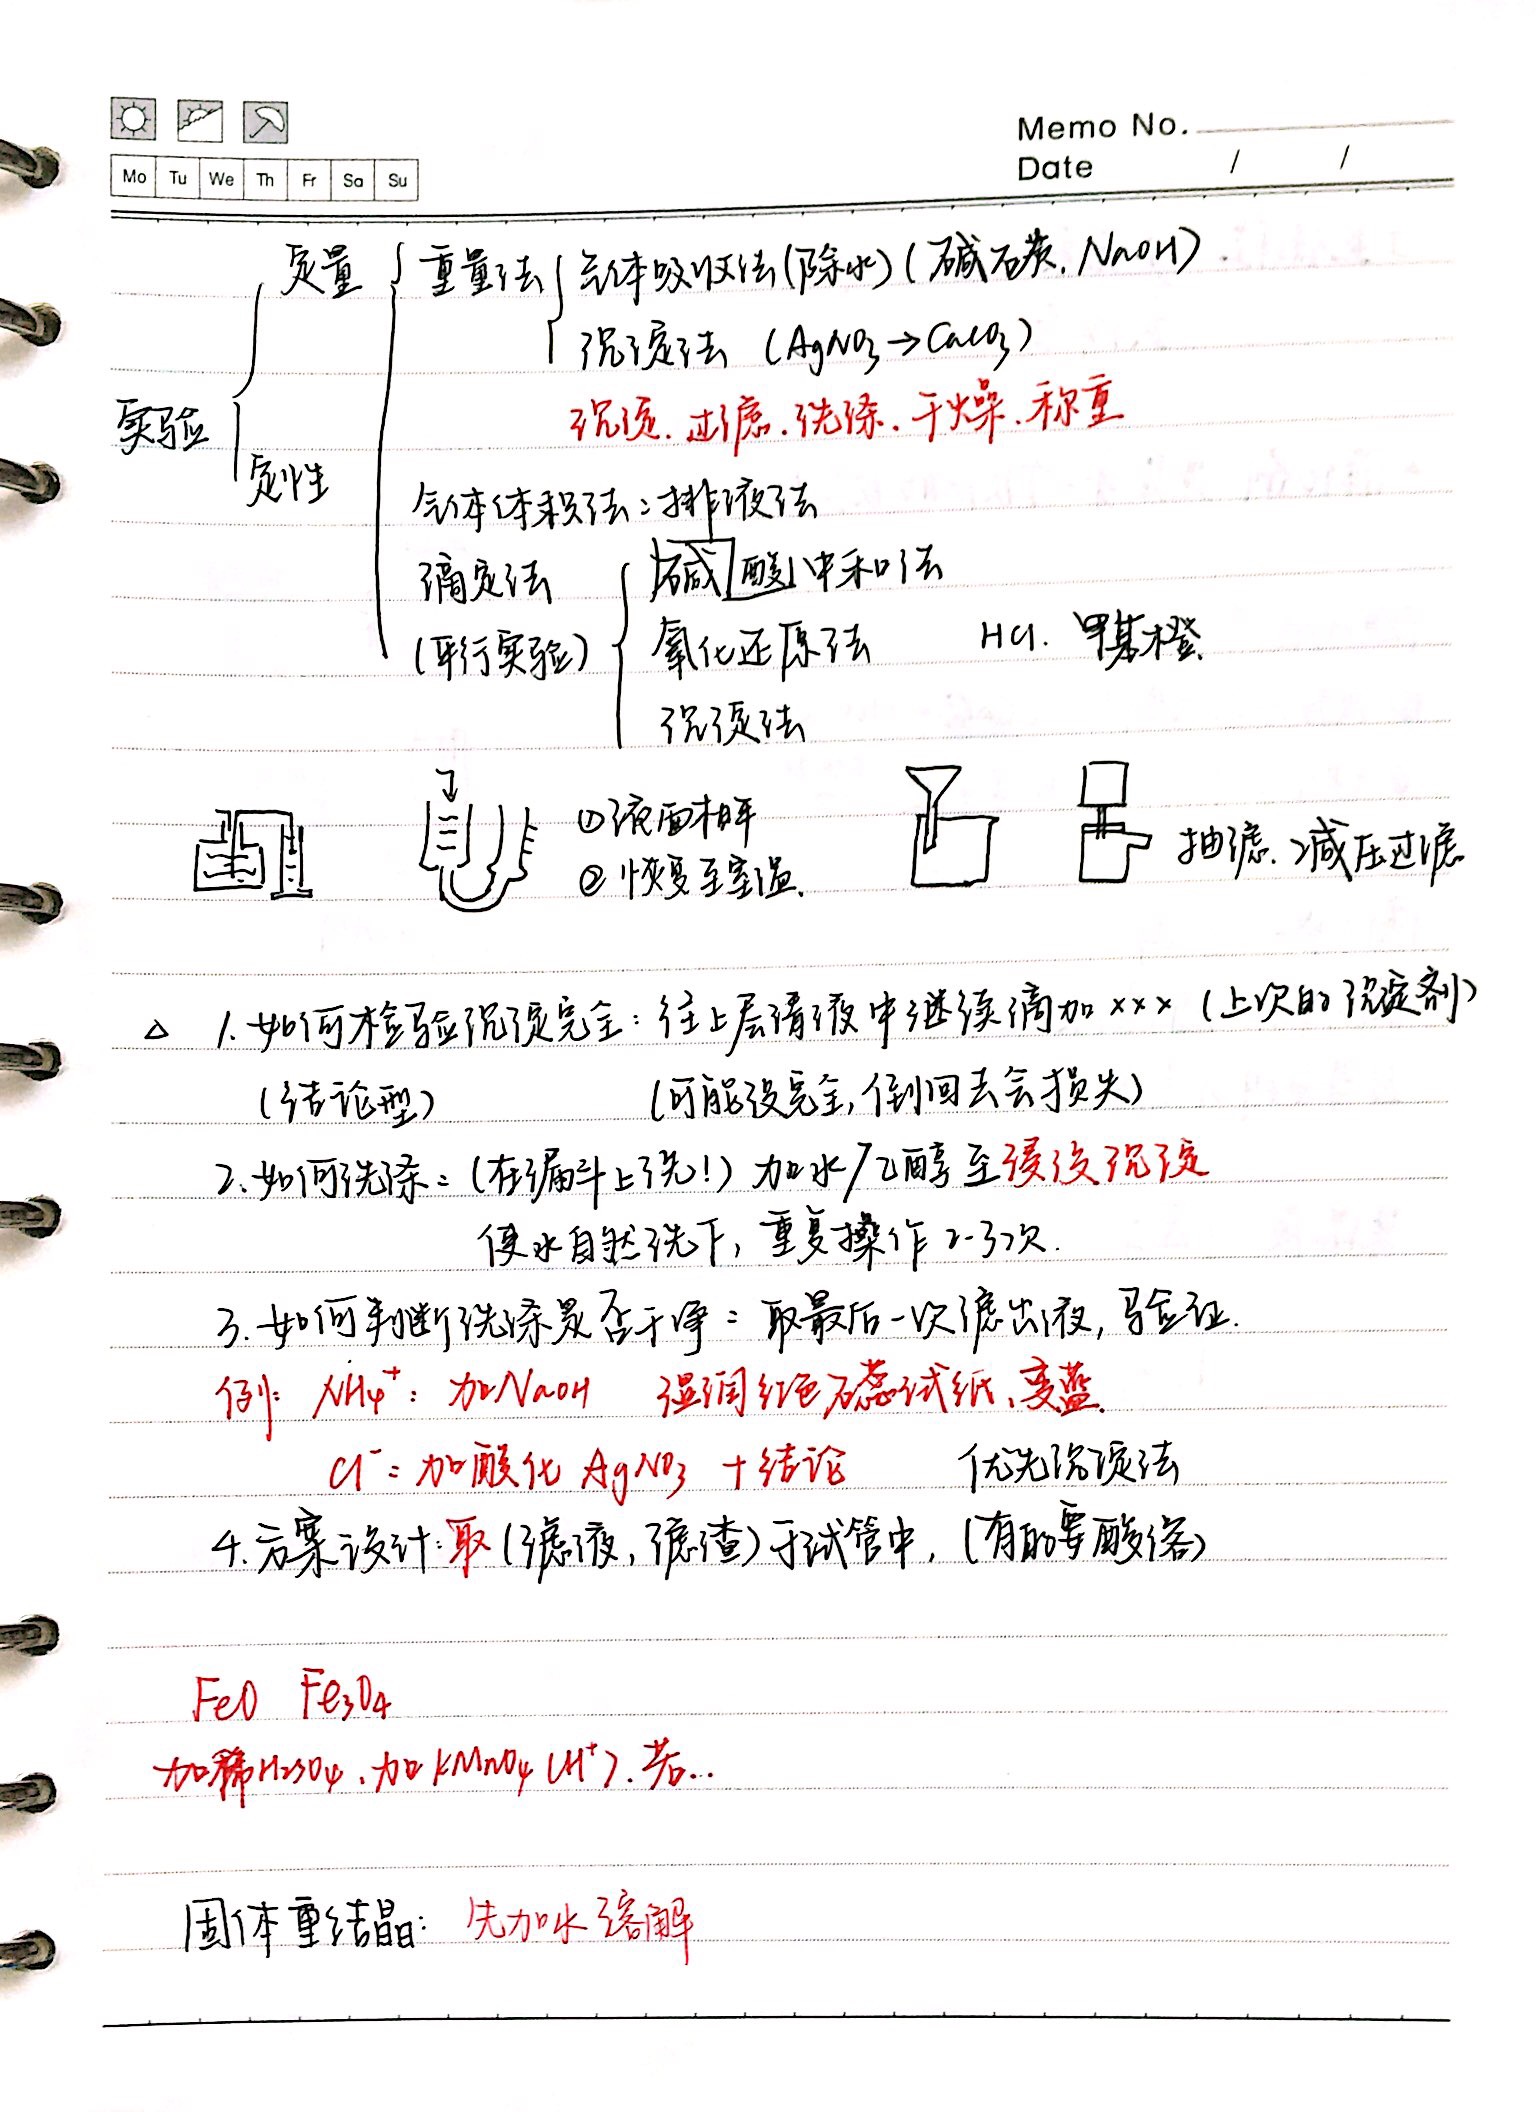 Memo No.
Mo Tu We Th Fr Sa Su
Date / /
定量 重量法 气体吸收法(除水)(碱石灰.NaOH)
沉淀法 (AgNO3→CaCO3)
实验 沉淀.过滤.洗涤.干燥.称重
定性 气体体积法:排液法
滴定法 碱 酸 中和法
(平行实验) 氧化还原法 HCl. 甲基橙.
沉淀法
①液面相平
②恢复至室温.
抽滤.减压过滤
△ 1.如何检验沉淀完全:往上层清液中继续滴加×××(上次的沉淀剂)
(结论型) (可能没完全,倒回去会损失)
2.如何洗涤:(在漏斗上洗!)加水/乙醇至浸没沉淀
使水自然洗下,重复操作2-3次.
3.如何判断洗涤是否干净:取最后一次滤出液,验证.
例: NH4+: 加NaOH 湿润红色石蕊试纸,变蓝.
Cl-:加酸化AgNO3 +结论 优先沉淀法
4.方案设计:取(滤液,滤渣)于试管中,(有的要酸溶)
FeO Fe3O4
加稀H2SO4.加KMnO4(H+).若...
固体重结晶: 先加水溶解